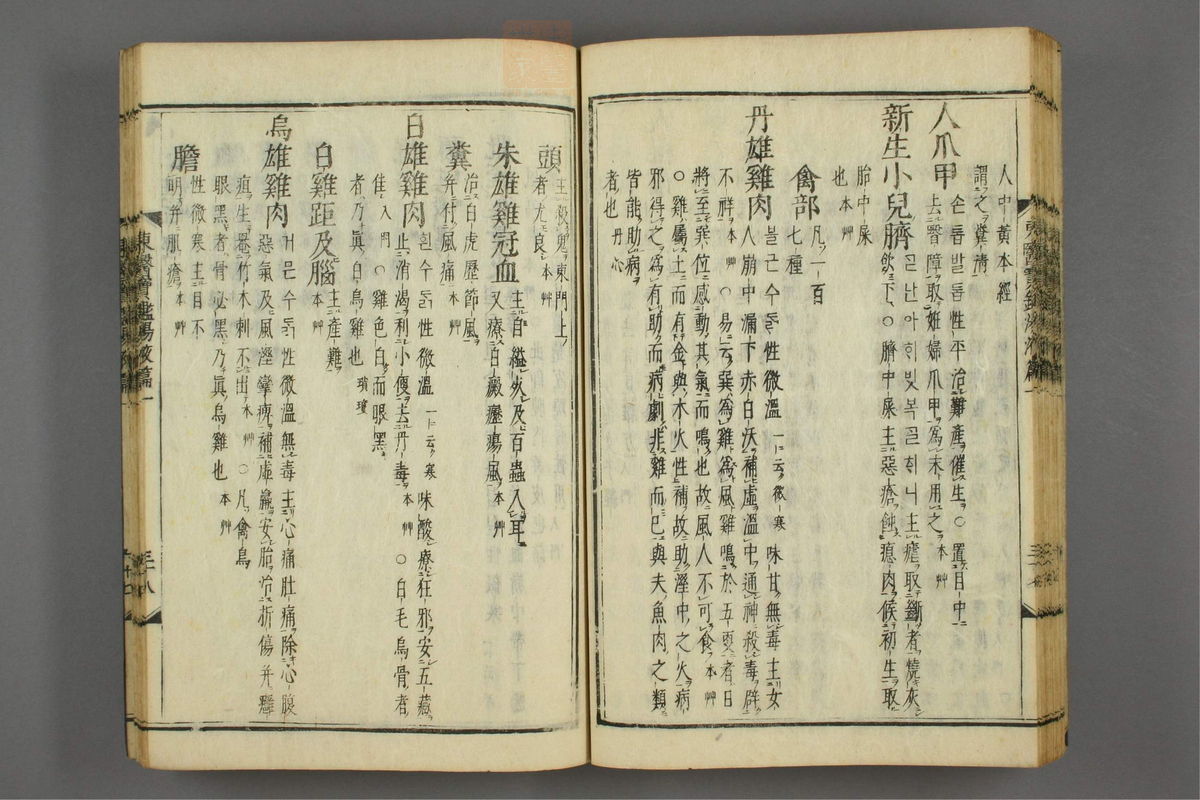 人中黃本經
謂之糞淸
人爪甲 손톱발톱性平治難產催生○置目中
去瞖障取妊婦爪甲爲末用之本艸
新生小兒臍 굿난아ᄒᆡ빗복굿혀니主瘧取斷者燒灰
飮下○臍中屎主惡瘡蝕瘜肉候初生取
胎中屎
也本艸
禽部 凡一百
七種
丹雄雞肉 블근수ᄃᆞᆰ性微溫一云微寒味甘無毒主女
人崩中漏下赤白沃補虛溫中通神殺毒辟
不祥本艸○易云巽爲雞爲風雞鳴於五更者日
將至巽位感動其氣而鳴也故風人不可食本艸
○雞屬土而有金與木火性補故助濕中之火病
邪得之爲有助而病劇非雞而已與夫魚肉之類
皆能助病
者也丹心
頭 主殺鬼東門上
者尤良本艸
朱雄雞冠血 主自縊死及百蟲入耳
又療白癜癧瘍風
糞 治白虎歷節風
幷付風痛本艸
白雄雞肉 흰수ᄃᆞᆰ性微溫一云寒味酸療狂邪安五藏
止消渴利小便去丹毒本艸○白毛烏骨者
佳入門○雞色白而眼黑
者乃眞白烏雞也
白雞距及腦 主產難
本艸
烏雄雞肉 거믄수ᄃᆞᆰ性微溫無毒主心痛肚痛除心腹
惡氣及風濕攣痺補虛羸安胎治折傷幷癰
疽生卷竹木刺不出本艸○凡禽烏
眼黑者骨必黑乃眞烏雞也本艸
膽 性微寒主目不
明幷肌瘡本艸
東醫寶鑑湯液篇一
三十八